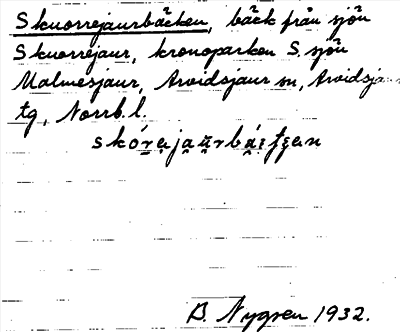 Skuorrejaurbäcken, bäck från sjön
Skuorrejaur, kronoparken S. sjön
Malmesjaur, Arvidsjaur sn, Arvidsja
tg, Norrb. l.
B. Nygren 1932.